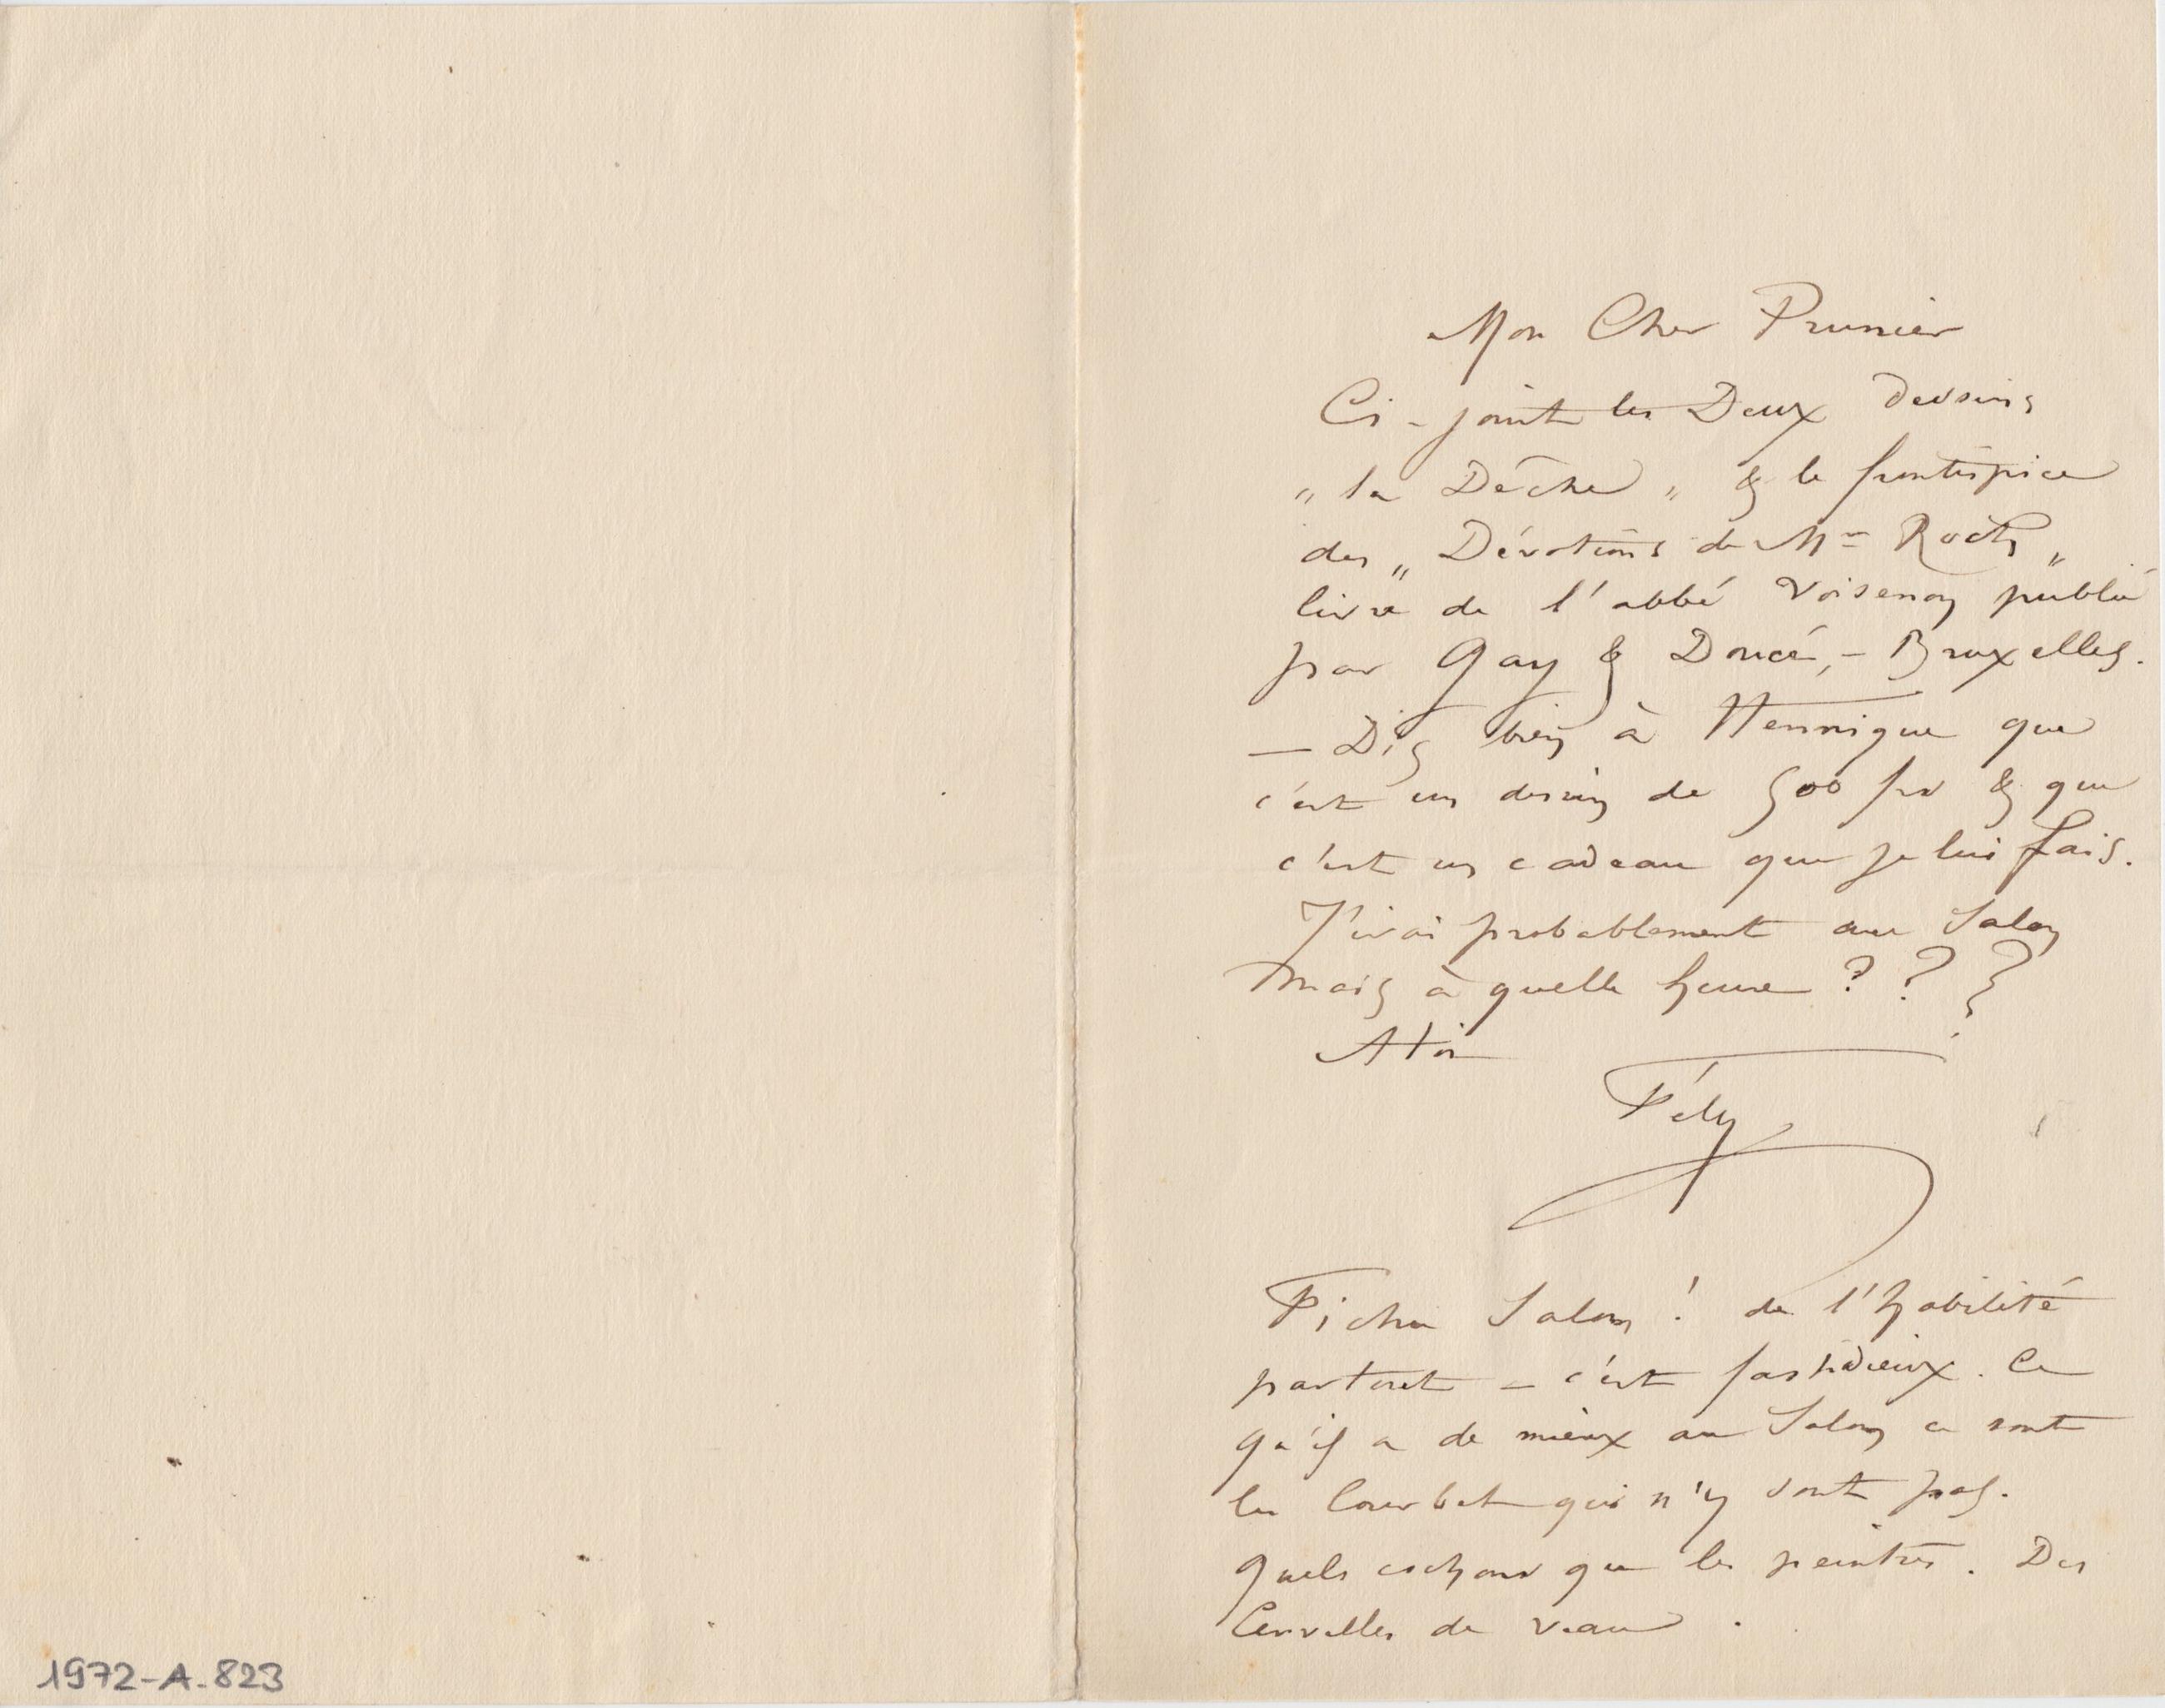 Mon Cher Prunier
Ci-joint les Deux dessins
„ la Dèche „ & le frontispice
des „ Dévotions de Mme Roch „
livre de l'abbé Voisenon publié
par Gay & Doucé, – Bruxelles.
— Dis bien à Hennique que
c'est un dessin de 500 frs & que
c'est un cadeau que je lui fais.
J'irai probablement au Salon
mais à quelle heure ? ? ?
A toi
Fély
Fichu Salon ! de l'habilité
partout – c'est fastidieux. Ce
qu'il a de mieux au Salon ce sont
les Courbet qui n'y sont pas.
Quels cochons que les peintres. Des
Cervelles de veau .
1972-A.823